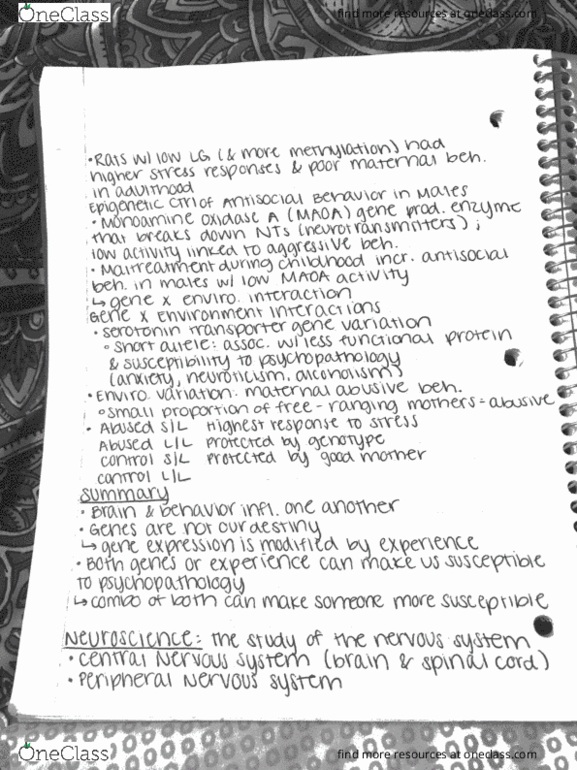 OneClass
find more resources at oneclass.com
• Rats w/ low LG (& more methylation) had
higher stress responses & poor maternal beh.
in adulthood
Epigenetic Ctrl of Antisocial Behavior in Males
• Monoamine Oxidase A (MAOA) gene prod. enzyme
that breaks down NTs (neurotransmitters);
low activity linked to aggressive beh.
• Maltreatment during childhood incr. antisocial
beh. in males w/ low MAOA activity
↳ gene x enviro. interaction
Gene x Environment Interactions
• serotonin transporter gene variation
◦ short allele: assoc. w/ less functional protein
& susceptibility to psychopathology
(anxiety, neuroticism, alcoholism)
• Enviro. variation: maternal abusive beh.
◦ small proportion of free-ranging mothers = abusive
• Abused S/L Highest response to stress
Abused L/L Protected by genotype
control S/L Protected by good mother
control L/L
Summary
• Brain & behavior infl. one another
• Genes are not our destiny
↳ gene expression is modified by experience
• Both genes or experience can make us susceptible
to psychopathology
↳ combo of both can make someone more susceptible
Neuroscience: the study of the nervous system
• Central Nervous System (brain & spinal cord)
• Peripheral Nervous System
OneClass
find more resources at oneclass.com